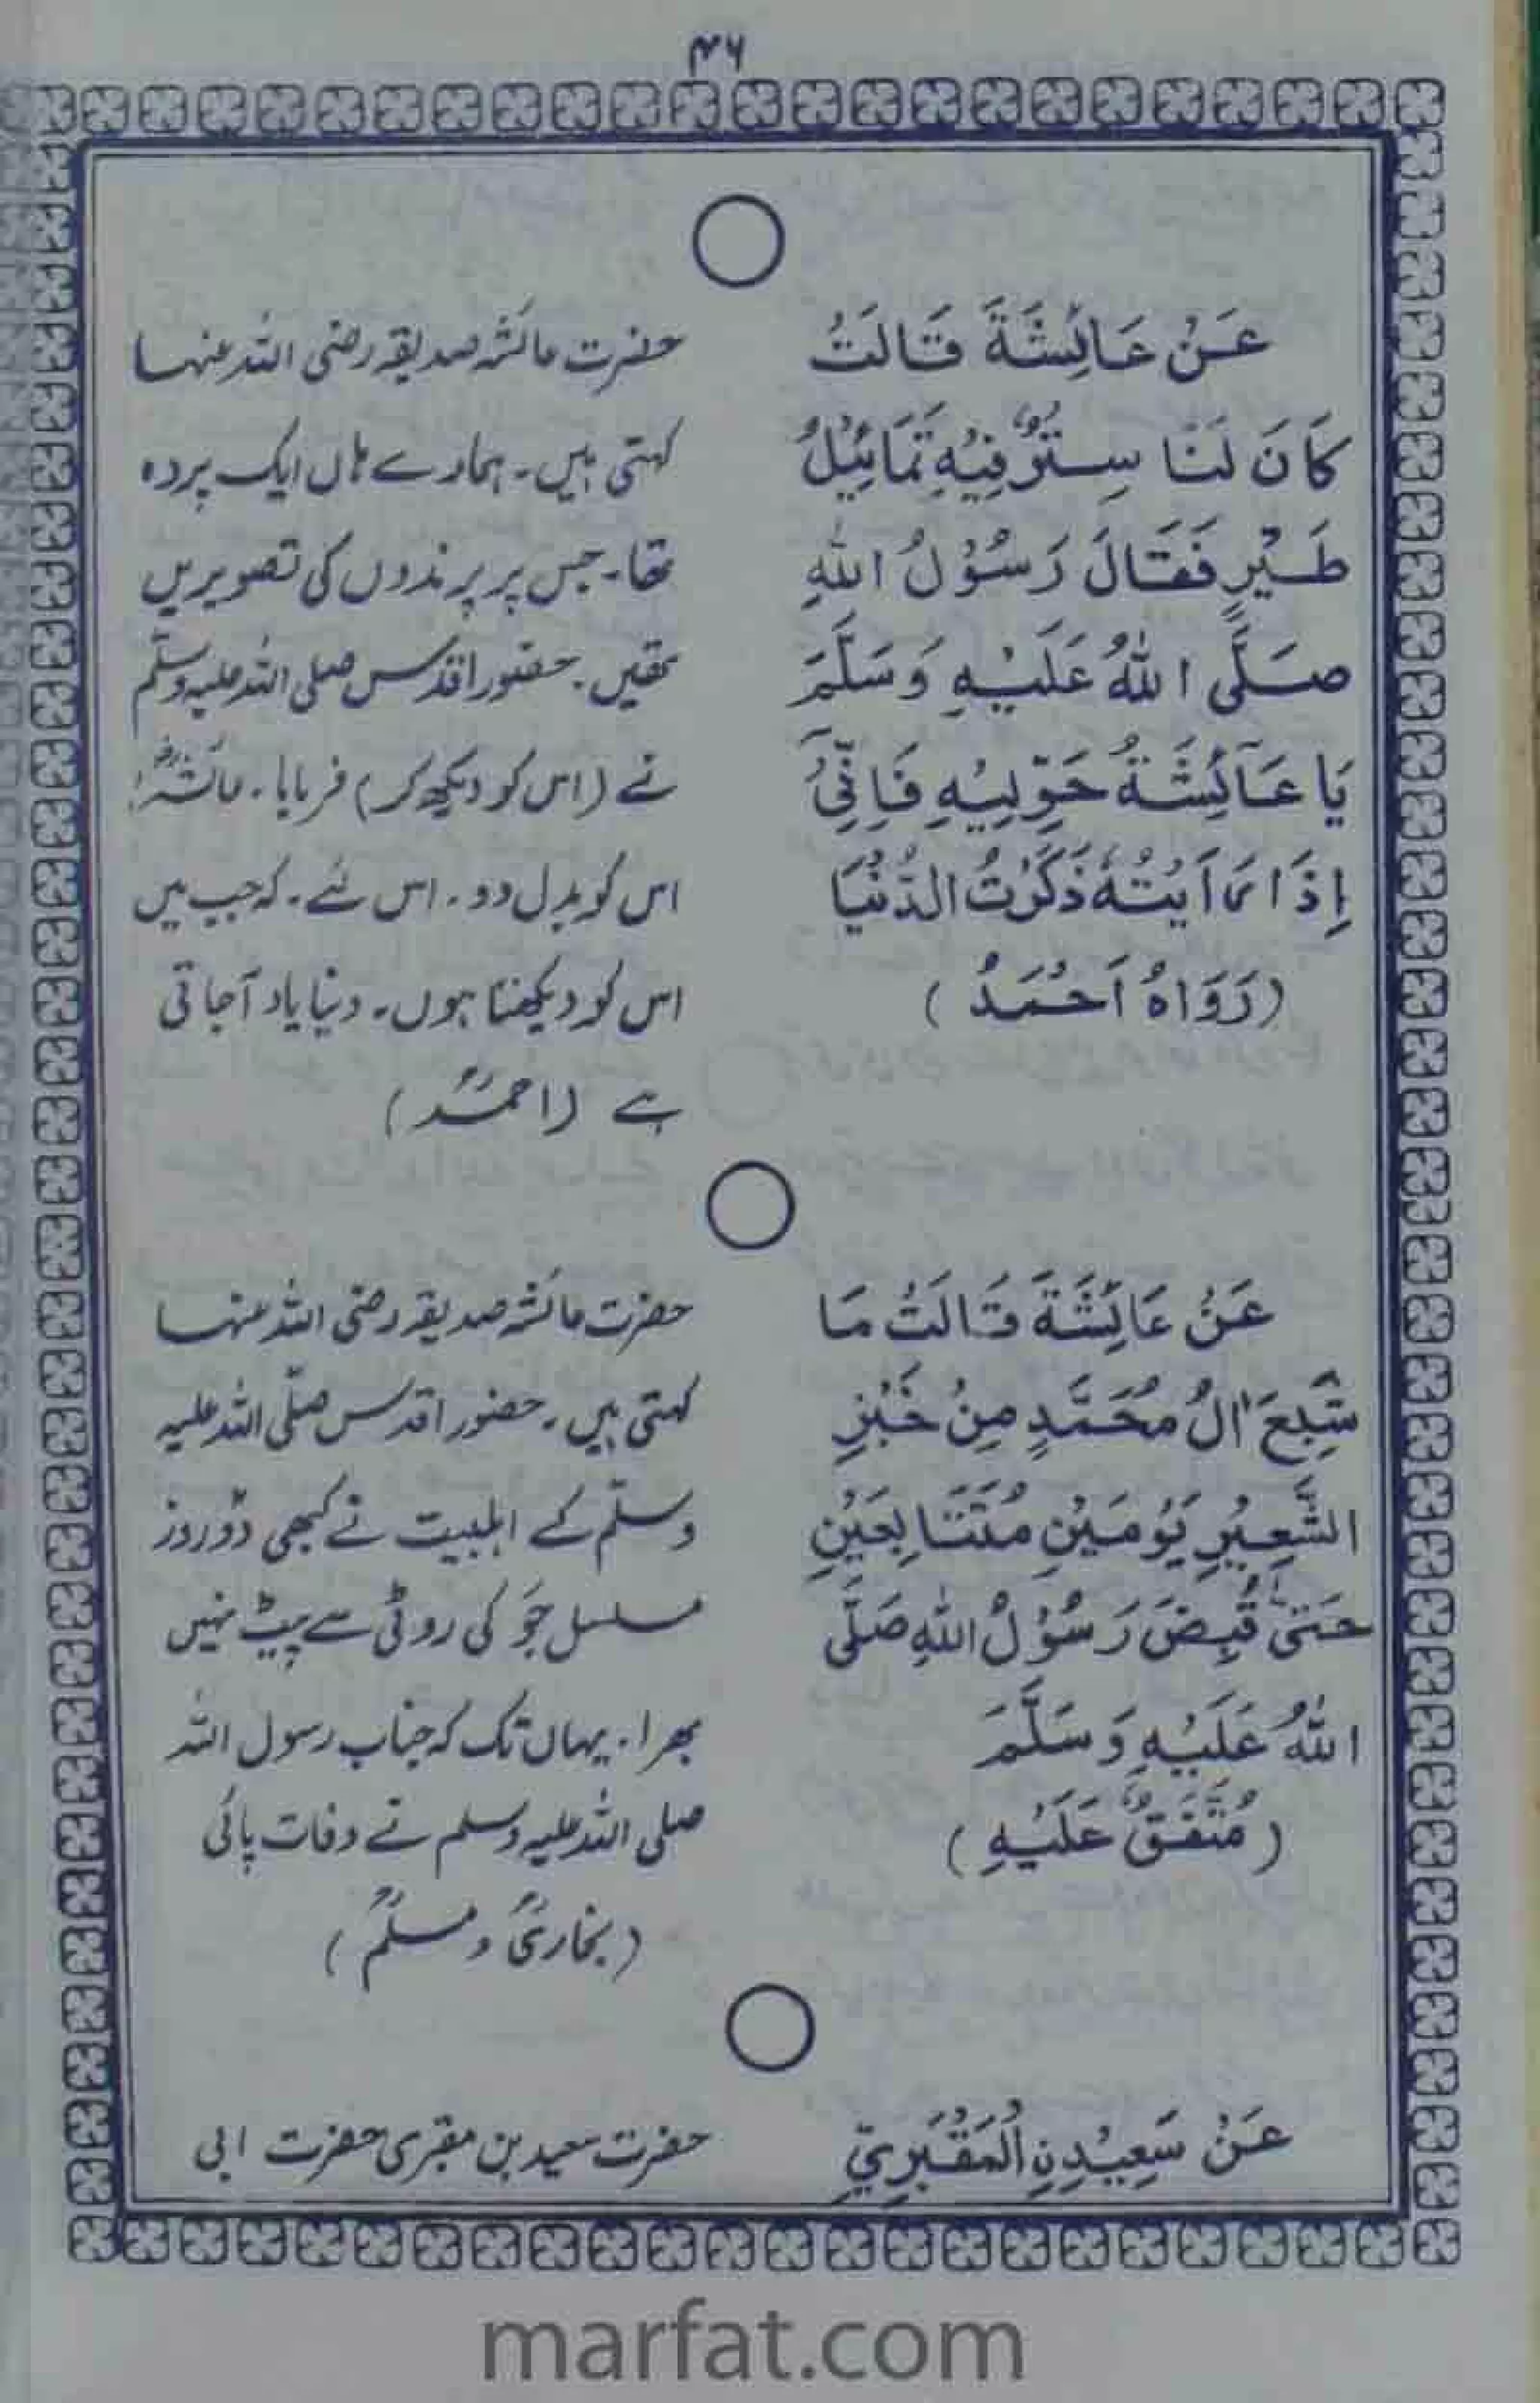 ۴۶
عَنْ عَائِشَةَ قَالَتْ
كَانَ لَنَا سِتْرٌ فِيْهِ تَمَاثِيْلُ
طَيْرٍ فَقَالَ رَسُوْلُ اللهِ
صَلَّى اللهُ عَلَيْهِ وَسَلَّمَ
يَا عَآئِشَةُ حَوِّلِيْهِ فَاِنِّيْ
اِذَا رَاَيْتُهٗ ذَكَرْتُ الدُّنْيَا
(رَوَاهُ اَحْمَدُ)
حضرت عائشہ صدیقہ رضی اللہ عنہا
کہتی ہیں۔ ہمارے ہاں ایک پردہ
تھا۔ جس پر پرندوں کی تصویریں
تھیں۔ حضور اقدس صلی اللہ علیہ وسلّم
نے (اس کو دیکھ کر) فرمایا۔ عائشہؓ!
اس کو بدل دو۔ اس لئے۔ کہ جب میں
اس کو دیکھتا ہوں۔ دنیا یاد آجاتی
ہے (احمدؒ)
عَنْ عَائِشَةَ قَالَتْ مَا
شَبِعَ اٰلُ مُحَمَّدٍ مِنْ خُبْزِ
الشَّعِيْرِ يَوْمَيْنِ مُتَتَابِعَيْنِ
حَتّٰى قُبِضَ رَسُوْلُ اللهِ صَلَّى
اللهُ عَلَيْهِ وَسَلَّمَ
(مُتَّفَقٌ عَلَيْهِ)
حضرت عائشہ صدیقہ رضی اللہ عنہا
کہتی ہیں۔ حضور اقدس صلّی اللہ علیہ
وسلّم کے اہلبیت نے کبھی دو روز
مسلسل جَو کی روٹی سے پیٹ نہیں
بھرا۔ یہاں تک کہ جناب رسول اللہ
صلی اللہ علیہ وسلم نے وفات پائی
(بخاریؒ و مسلمؒ)
عَنْ سَعِيْدِنِ الْمَقْبَرِيِّ
حضرت سعید بن مقبری حضرت ابی
marfat.com